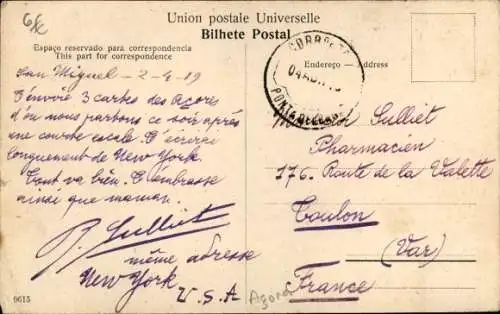 6€
Union postale Universelle
Bilhete Postal
Espaço reservado para correspondencia
This part for correspondence
Endereço — Address
CORREIO
04 ABR 19
PONTA DELGADA
San Miguel - 2-4-19
J'envoie 3 cartes des Açores
d'où nous partons ce soir après
une courte escale. J'écrirai
longuement de New York.
Tout va bien. J'embrasse
ainsi que maman.
P. Sulliet
même adresse
New York
U.S.A
Sulliet
Pharmacien
176. Route de la Valette
Toulon
(Var)
France
Agora
6615